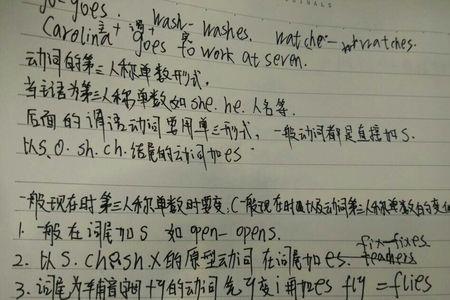 go-goes. wash-washes. watche-watches.
主 谓
Carolina goes to work at seven.
动词的第三人称单数形式.
当主语为第三人称单数如she. he. 人名等.
后面的谓语动词要用单三形式, 一般动词都是直接加s.
以s.o.sh.ch.结尾的动词加es
一般现在时第三人称单数时要变.(一般现在时
1. 一般在词尾加s 如open-opens.
fix-fixes
2. 以s.ch sh.x的原型动词在词尾加es. teachers
3. 词尾为辅音 +y的动词先 y变i再加es fly=flies